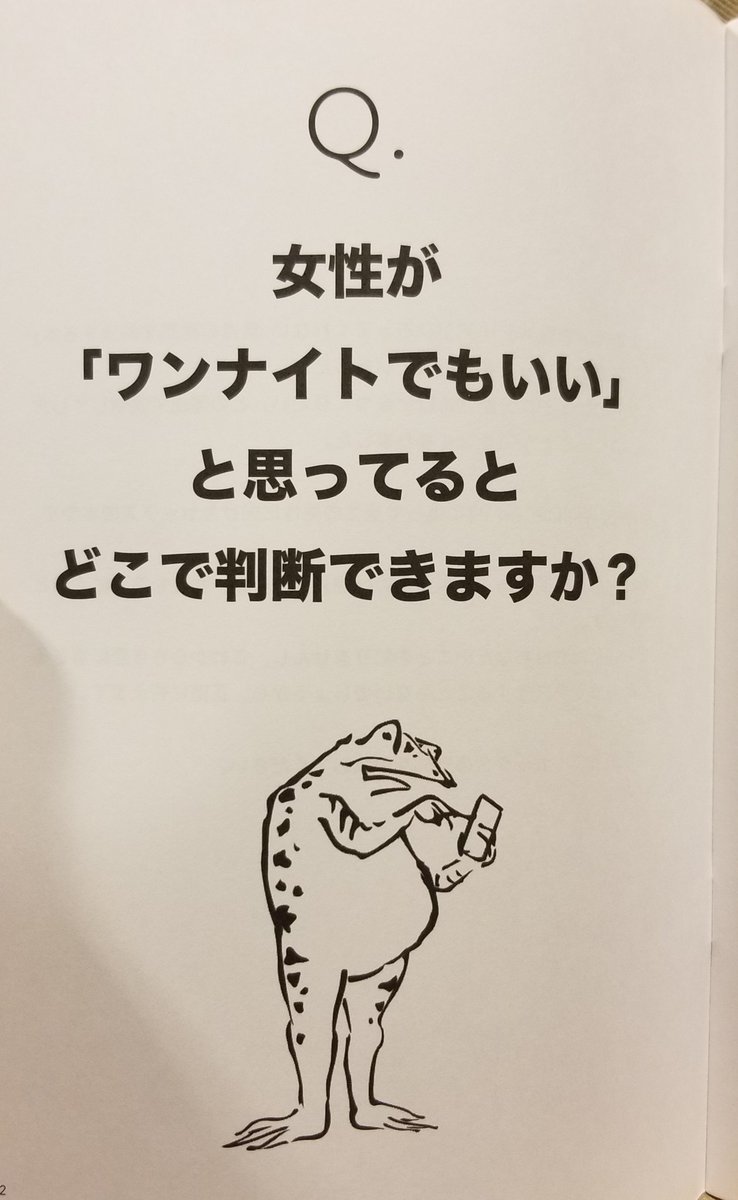 Q.
女性が
「ワンナイトでもいい」
と思ってると
どこで判断できますか？
2